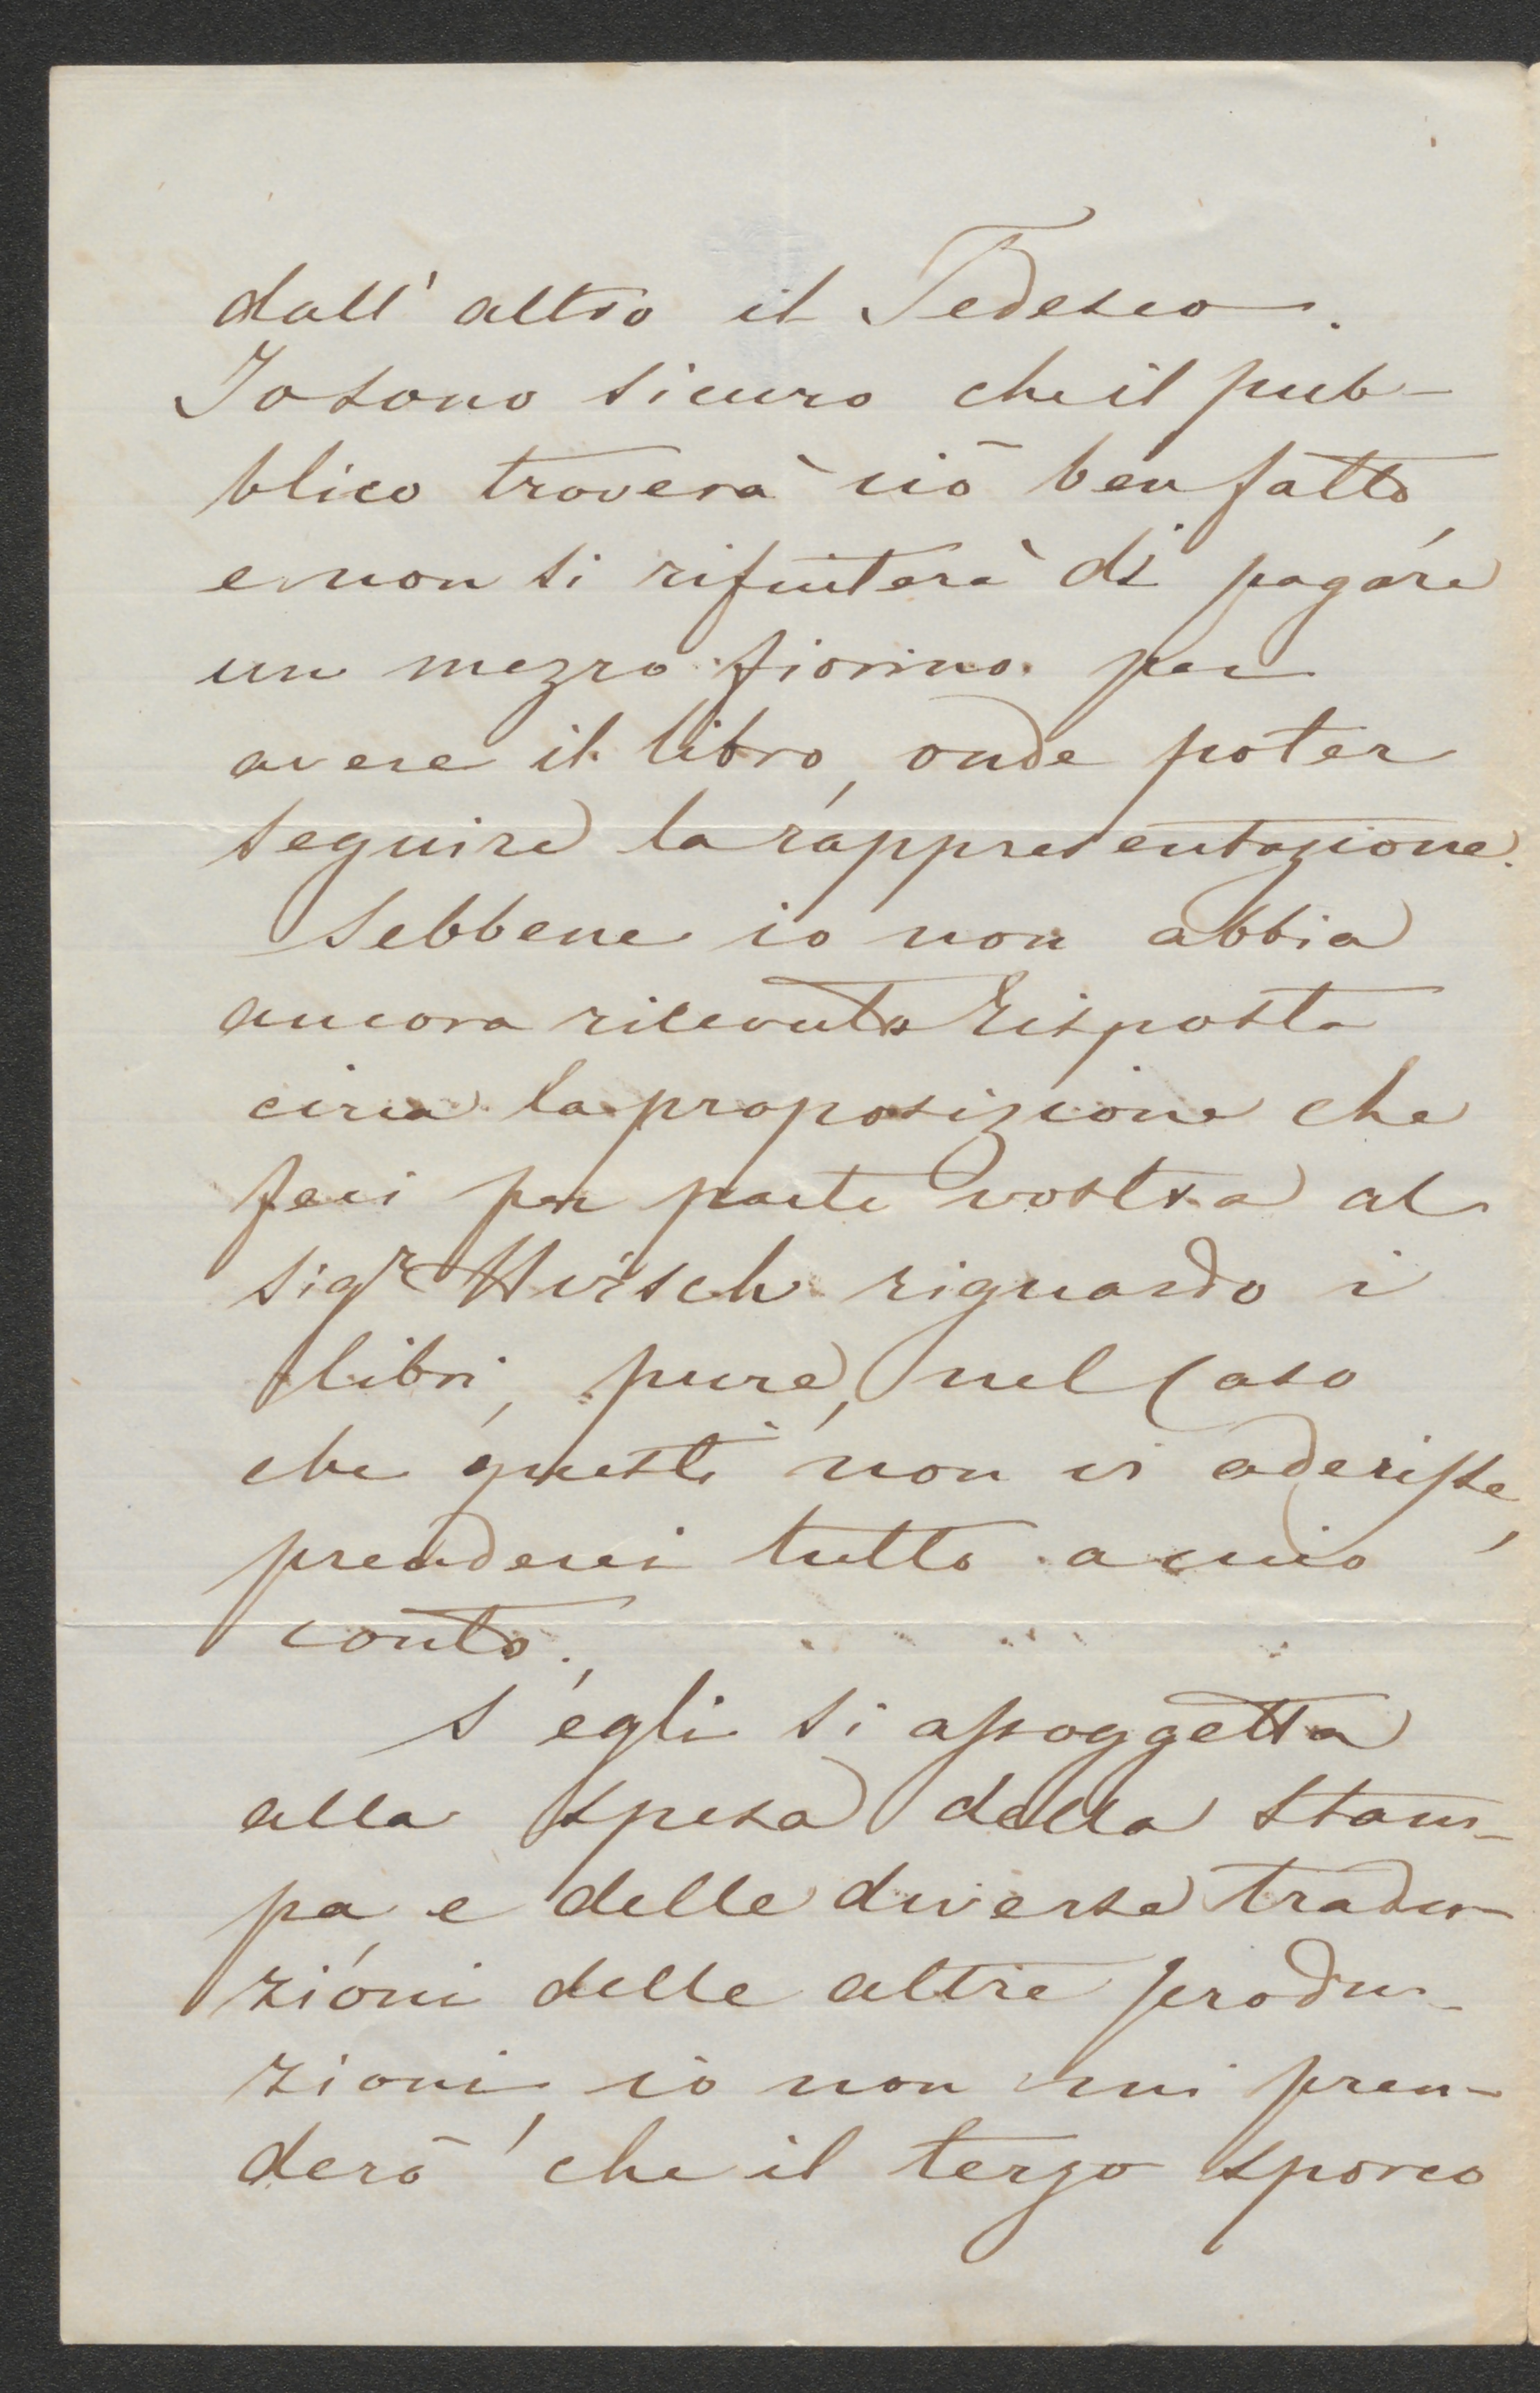 dall' altro il Tedesco.
Io sono sicuro che il pub-
blico troverà ciò ben fatto,
e non si rifiuterà di pagare
un mezzo fiorino per
avere il libro, onde poter
seguire la rappresentazione.
Sebbene io non abbia
ancora ricevuto risposta
circa la proposizione che
feci per parte vostra al
sigr Hirsch riguardo i
libri, pure, nel caso
che questi non vi aderisse,
prenderei tutto a mio
conto.
S'egli si assoggetta
alla spesa della stam-
pa, e delle diverse tradu-
zioni delle altre produ-
zioni, io non mi pren-
derò che il terzo sporco